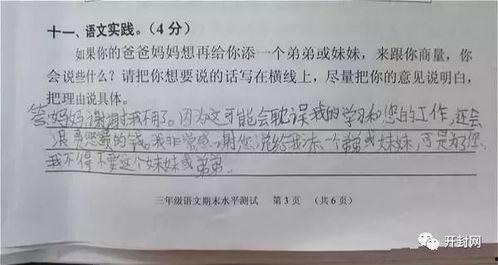 十一、语文实践。（4分）
如果你的爸爸妈妈想再给你添一个弟弟或妹妹，来跟你商量，你
会说些什么？请把你想要说的话写在横线上，尽量把你的意见说明白，
把理由说具体。
答：妈妈谢谢对我不用了。因为这可能会耽误我的学习和您的工作，还会
浪费您的钱。我非常感谢您说给我添一个弟或妹妹，可是为了您，
我不得不要这个妹妹或弟弟.
三年级语文期末水平测试 第3页 （共6页）
开封网